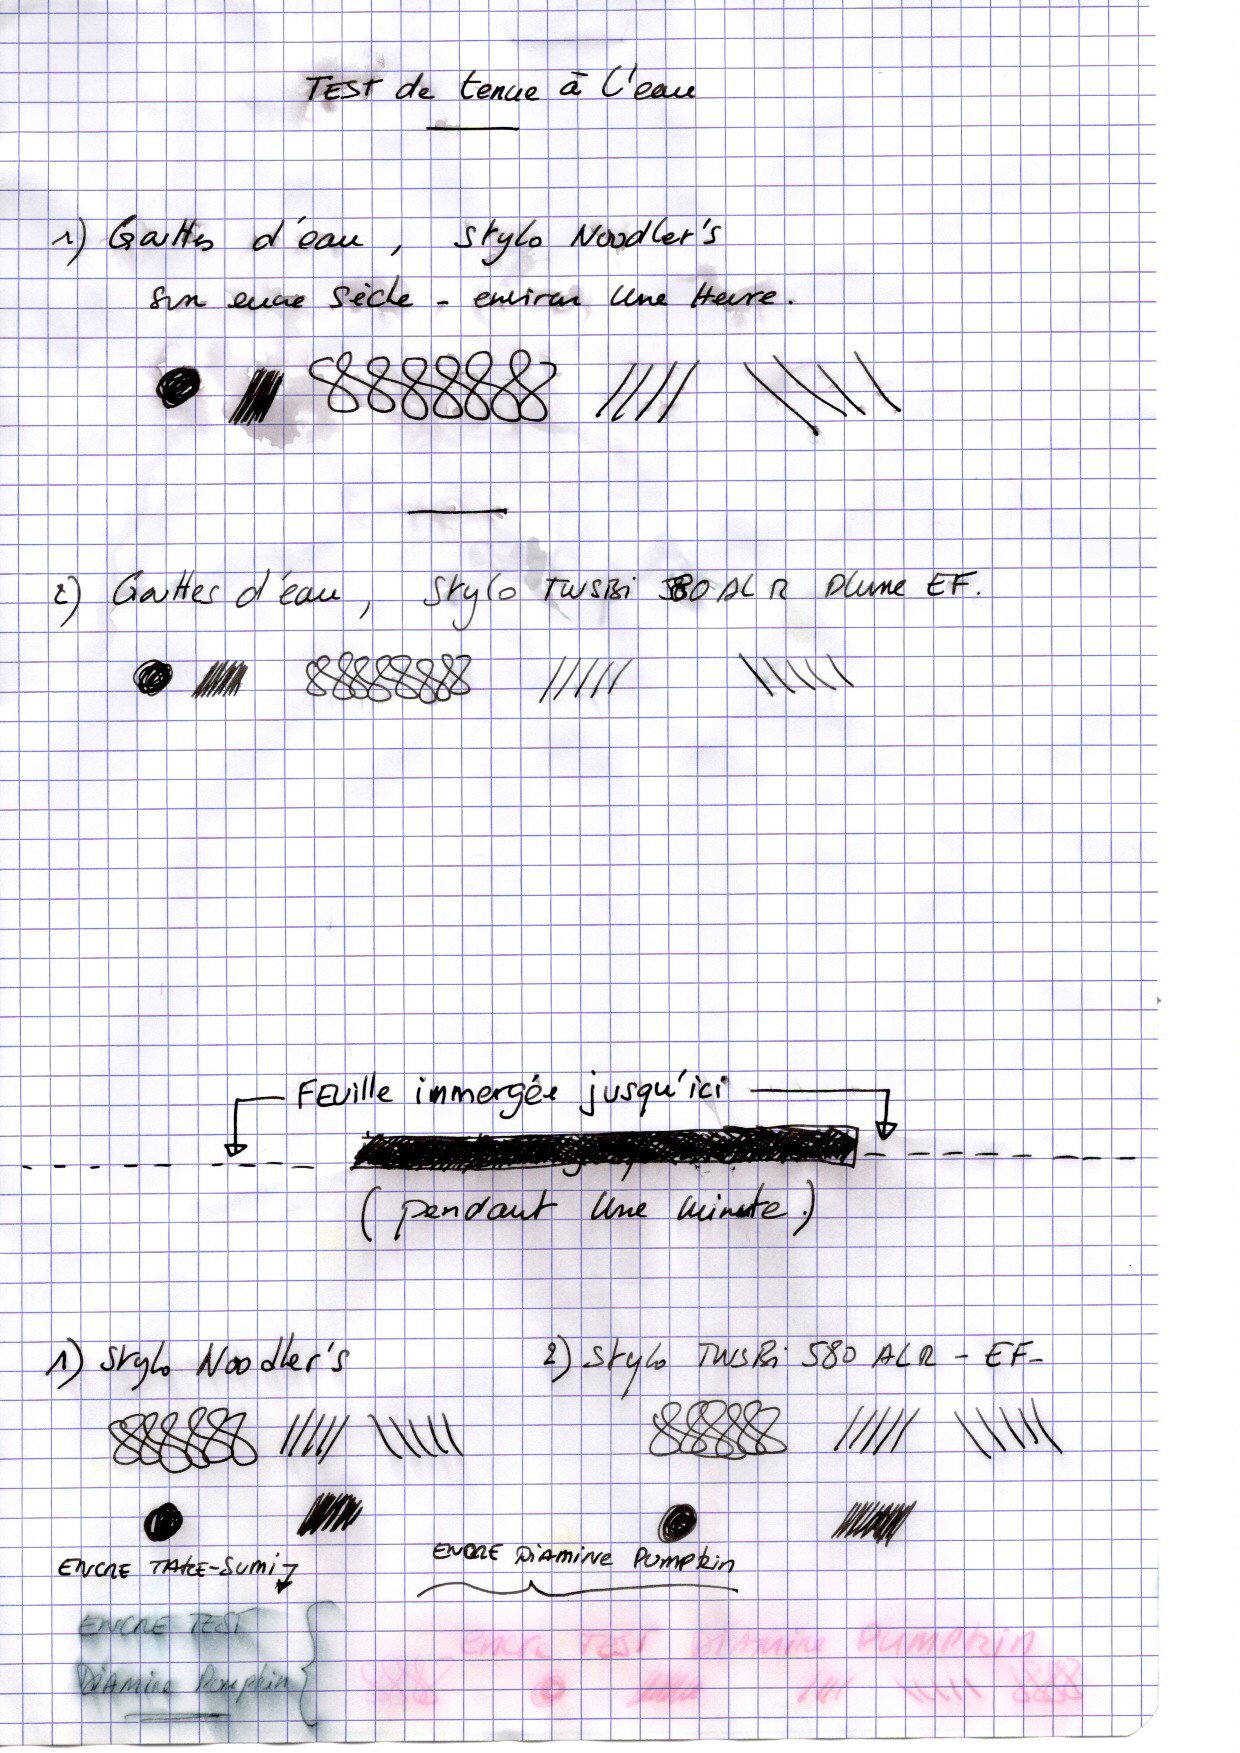 TEST de tenue à L'eau
1) Gouttes d'eau, Stylo Noodler's
sur encre sèche - environ Une Heure.
2) Gouttes d'eau, Stylo TWSBi 580 ALR Plume EF.
FEuille immergée jusqu'ici
(pendant Une minute.)
1) Stylo Noodler's
2) Stylo TWSBi 580 ALR - EF-
ENCRE TAKE-Sumi
ENCRE DiAMiNE Pumpkin
ENCRE TEST
DiAMiNE Pumpkin
Encre TEST DiAMiNE PumPKin